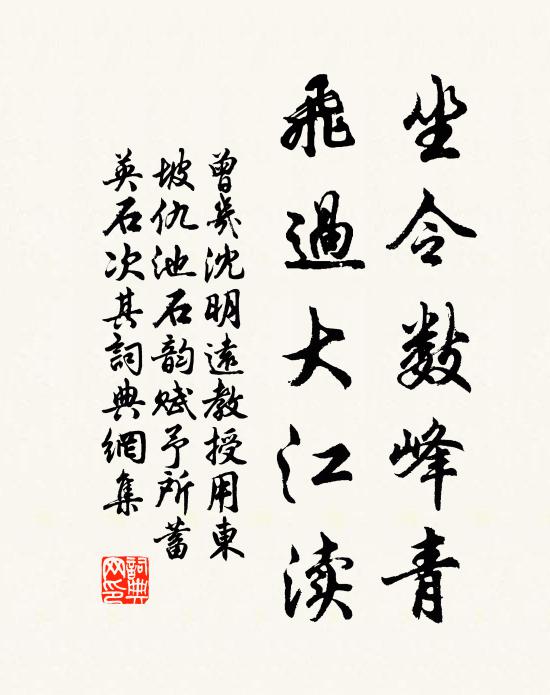 坐令数峰青
飛過大江渎
曾幾沈明遠教授用東
坡仇池石韵賦予所蓄
英石次其詞典網集
詞典
网印